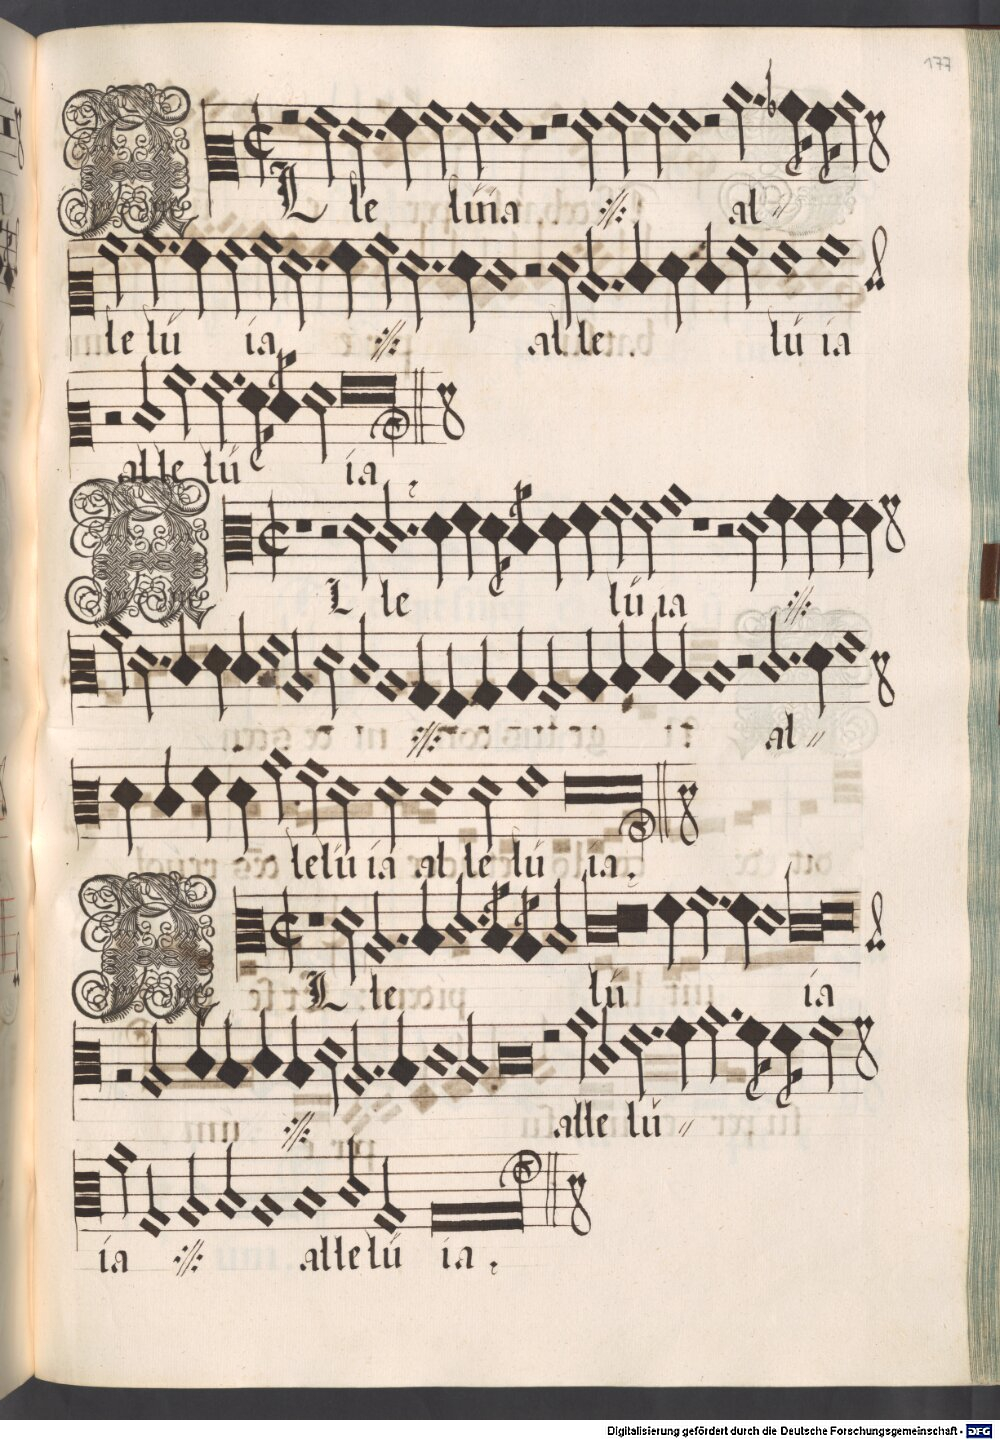 177
ALle lúia al
le lú ia alle lú ia
alle lú ia.
ALle lú ia
al
lelú ia alle lú ia.
ALle lú ia
alle lú
ia alle lú ia.
Digitalisierung gefördert durch die Deutsche Forschungsgemeinschaft - DFG